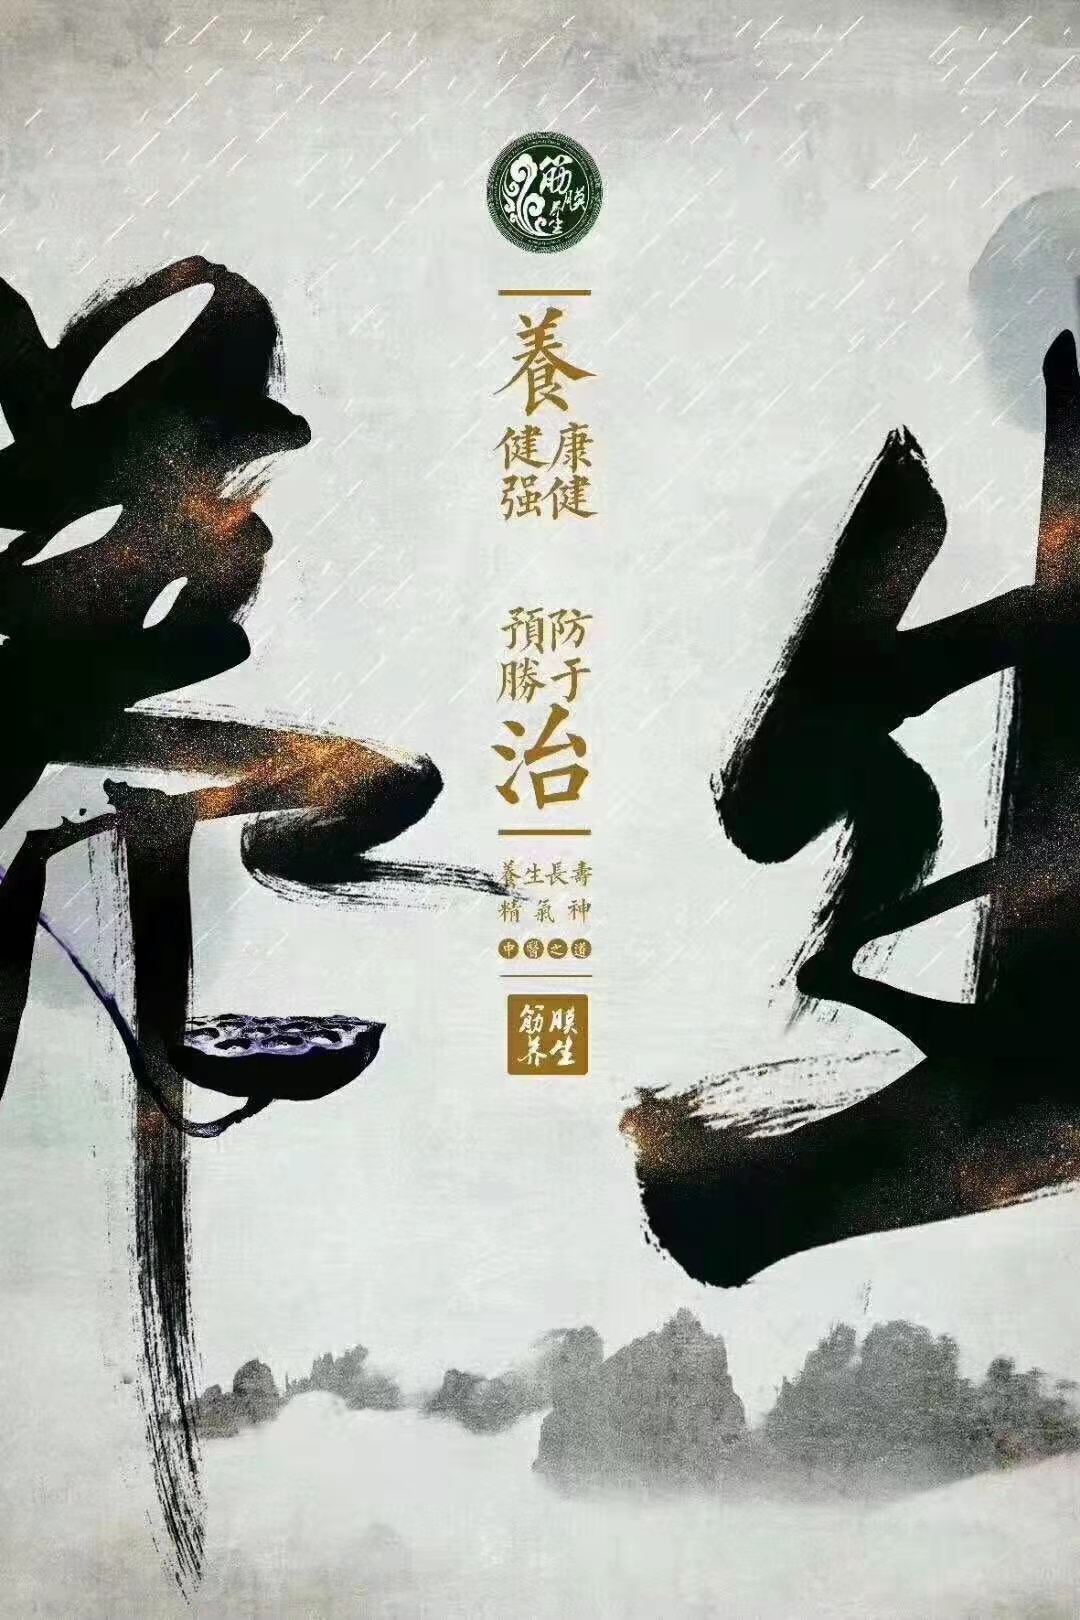 养生
筋膜
养生
養
健康
强健
預防
勝于
治
養生長壽
精氣神
中醫之道
筋膜
养生